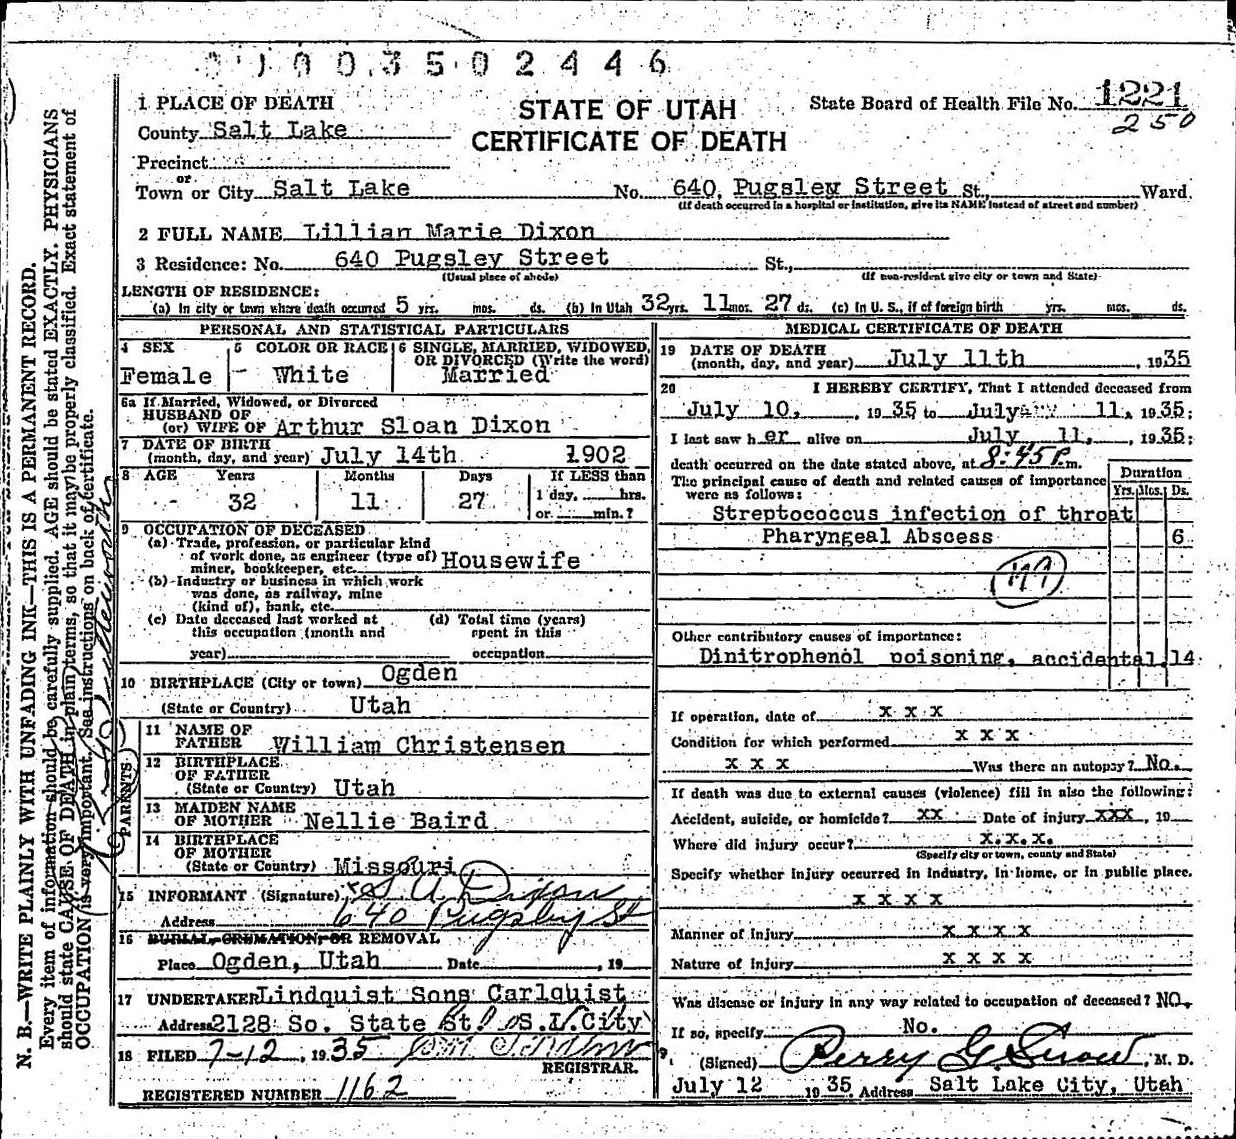 0 1 0 0 3 5 0 2 4 4 6
STATE OF UTAH
CERTIFICATE OF DEATH
State Board of Health File No. 1221
250
1 PLACE OF DEATH
County Salt Lake
Precinct
or
Town or City Salt Lake No. 640, Pugsley Street St., Ward.
(If death occurred in a hospital or institution, give its NAME instead of street and number)
2 FULL NAME Lillian Marie Dixon
3 Residence: No. 640 Pugsley Street St.,
(Usual place of abode) (If non-resident give city or town and State)
LENGTH OF RESIDENCE:
(a) In city or town where death occurred 5 yrs. mos. ds. (b) In Utah 32 yrs. 11 mos. 27 ds. (c) In U. S., if of foreign birth yrs. mos. ds.
PERSONAL AND STATISTICAL PARTICULARS
4 SEX
Female
5 COLOR OR RACE
White
6 SINGLE, MARRIED, WIDOWED,
OR DIVORCED (Write the word)
Married
6a If Married, Widowed, or Divorced
HUSBAND OF
(or) WIFE OF Arthur Sloan Dixon
7 DATE OF BIRTH
(month, day, and year) July 14th 1902
8 AGE Years Months Days If LESS than
32 11 27 1 day, hrs.
or min.?
9 OCCUPATION OF DECEASED
(a) Trade, profession, or particular kind
of work done, as engineer (type of)
miner, bookkeeper, etc. Housewife
(b) Industry or business in which work
was done, as railway, mine
(kind of), bank, etc.
(c) Date deceased last worked at
this occupation (month and
year)
(d) Total time (years)
spent in this
occupation
10 BIRTHPLACE (City or town) Ogden
(State or Country) Utah
PARENTS
11 NAME OF
FATHER William Christensen
12 BIRTHPLACE
OF FATHER
(State or Country) Utah
13 MAIDEN NAME
OF MOTHER Nellie Baird
14 BIRTHPLACE
OF MOTHER
(State or Country) Missouri
15 INFORMANT (Signature) x S. A. Dixon
Address 640 Pugsley St
16 BURIAL, CREMATION, OR REMOVAL
Place Ogden, Utah Date , 19
17 UNDERTAKER Lindquist Sons Carlquist
Address 2128 So. State St. S.L.City
18 FILED 7-12, 1935
REGISTRAR.
REGISTERED NUMBER 1162
MEDICAL CERTIFICATE OF DEATH
19 DATE OF DEATH
(month, day, and year) July 11th , 1935
20 I HEREBY CERTIFY, That I attended deceased from
July 10, , 1935 to July 11, 1935;
I last saw her alive on July 11, , 1935;
death occurred on the date stated above, at 8:45 P.m.
The principal cause of death and related causes of importance
were as follows:
Duration
Yrs. Mos. Ds.
Streptococcus infection of throat
Pharyngeal Abscess 6
Other contributory causes of importance:
Dinitrophenol poisoning, accidental. 14
If operation, date of X X X
Condition for which performed X X X
X X X Was there an autopsy? No.
If death was due to external causes (violence) fill in also the following:
Accident, suicide, or homicide? XX Date of injury XXX, 19
Where did injury occur? X.X.X.
(Specify city or town, county and State)
Specify whether injury occurred in industry, in home, or in public place.
X X X X
Manner of Injury X X X X
Nature of Injury X X X X
Was disease or injury in any way related to occupation of deceased? NO.
If so, specify No.
(Signed) Perry G. Snow, M. D.
July 12 1935 Address Salt Lake City, Utah
N. B.—WRITE PLAINLY WITH UNFADING INK—THIS IS A PERMANENT RECORD.
Every item of information should be carefully supplied. AGE should be stated EXACTLY. PHYSICIANS
should state CAUSE OF DEATH in plain terms, so that it may be properly classified. Exact statement of
OCCUPATION is very important. See instructions on back of certificate.